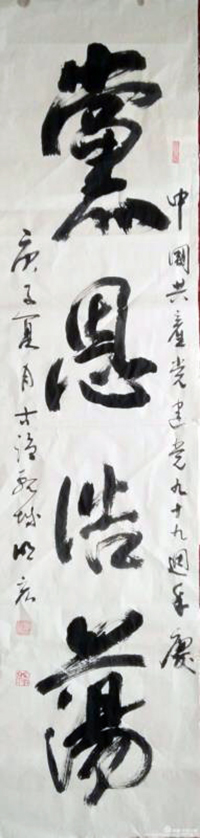 中國共產党建党九十九週年慶
黨恩浩蕩
庚子夏月